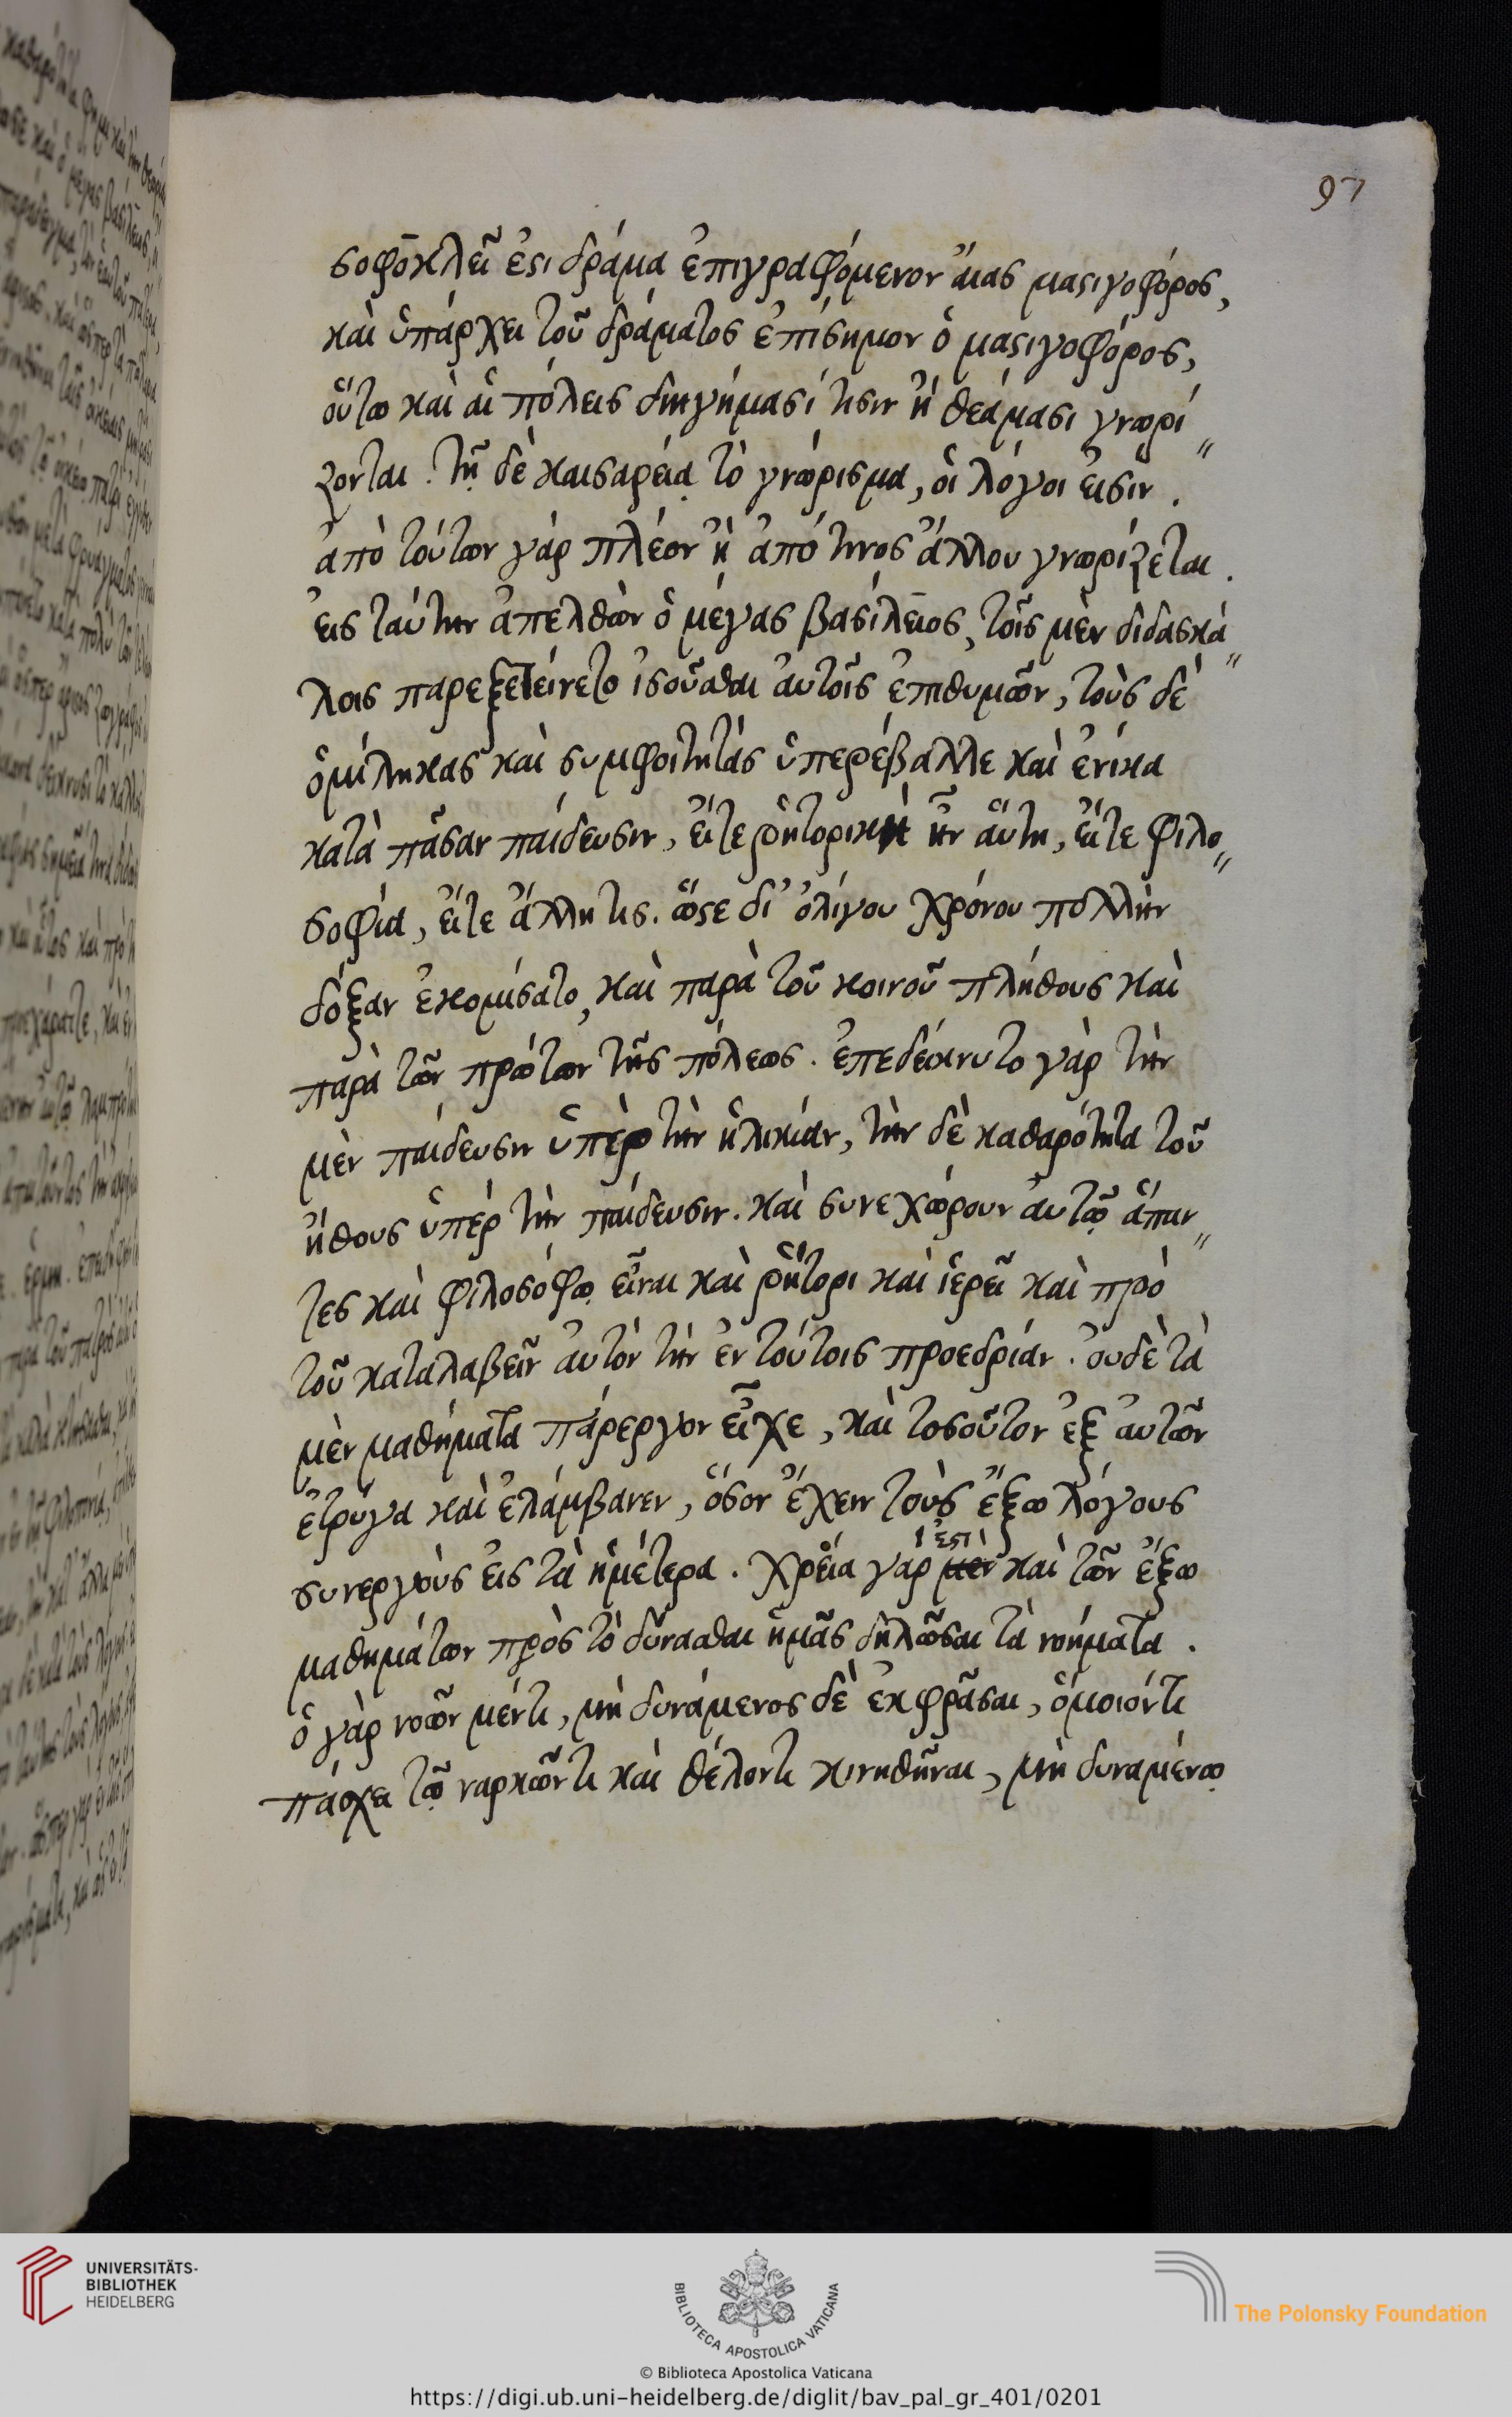 97
σοφōκλεῖ ἐστι δράμα ἐπιγραφόμενον ἄιας μαστιγοφόρος,
καὶ ὑπάρχει τοῦ δράματος ἐπίσημον ὁ μαστιγοφόρος,
οὕτω καὶ αἱ πόλεις διηγήμασί τισιν ἢ θεάμασι γνωρί
ζονται. τῇ δὲ καισαρείᾳ τὸ γνώρισμα, οἱ λόγοι εἰσίν.
ἀπὸ τούτων γάρ πλέον ἢ ἀπό τινος ἄλλου γνωρίζεται.
εἰς ταύτην ἀπελθὼν ὁ μέγας βασίλειος, τοῖς μὲν διδασκά
λοις παρεξετείνετο ἰσοῦσθαι αὐτοῖς ἐπιθυμῶν, τοὺς δὲ
ὁμίληκας καὶ συμφοιτητάς ὑπερέβαλλε καὶ ἐνίκα
κατὰ πᾶσαν παίδευσιν, εἴτε ῥητορικὴ ἦν αὕτη, εἴτε φιλο
σοφία, εἴτε ἄλλη τις. ὥστε δι' ὀλίγου χρόνου πολλὴν
δόξαν ἐκομίσατο, καὶ παρὰ τοῦ κοινοῦ πλήθους καὶ
παρὰ τῶν πρώτων τῆς πόλεως. ἐπεδείκνυτο γὰρ τὴν
μὲν παίδευσιν ὑπὲρ τὴν ἡλικίαν, τὴν δὲ καθαρότητα τοῦ
ἤθους ὑπὲρ τὴν παίδευσιν. καὶ συνεχώρουν αὐτῷ ἅπαν
τες καὶ φιλοσόφῳ εἶναι καὶ ῥήτορι καὶ ἱερεῖ καὶ πρὸ
τοῦ καταλαβεῖν αὐτὸν τὴν ἐν τούτοις προεδρίαν. οὐδὲ τὰ
μὲν μαθήματα πάρεργον εἶχε, καὶ τοσοῦτον ἐξ αὐτῶν
ἐτρύγα καὶ ἐλάμβανεν, ὅσον ἔχειν τοὺς ἔξω λόγους
συνεργοὺς εἰς τὰ ἡμέτερα. χρεία γάρ ἐστὶ καὶ τῶν ἔξω
μαθημάτων πρὸς τὸ δύνασθαι ἡμᾶς δηλῶσαι τὰ νοήματα.
ὁ γὰρ νοῶν μέν τι, μὴ δυνάμενος δὲ ἐκφρᾶσαι, ὅμοιόν τι
πάσχει τῷ ναρκῶντι καὶ θέλοντι κινηθῆναι, μὴ δυναμένῳ
UNIVERSITÄTS-
BIBLIOTHEK
HEIDELBERG
BIBLIOTECA APOSTOLICA VATICANA
The Polonsky Foundation
© Biblioteca Apostolica Vaticana
https://digi.ub.uni-heidelberg.de/diglit/bav_pal_gr_401/0201